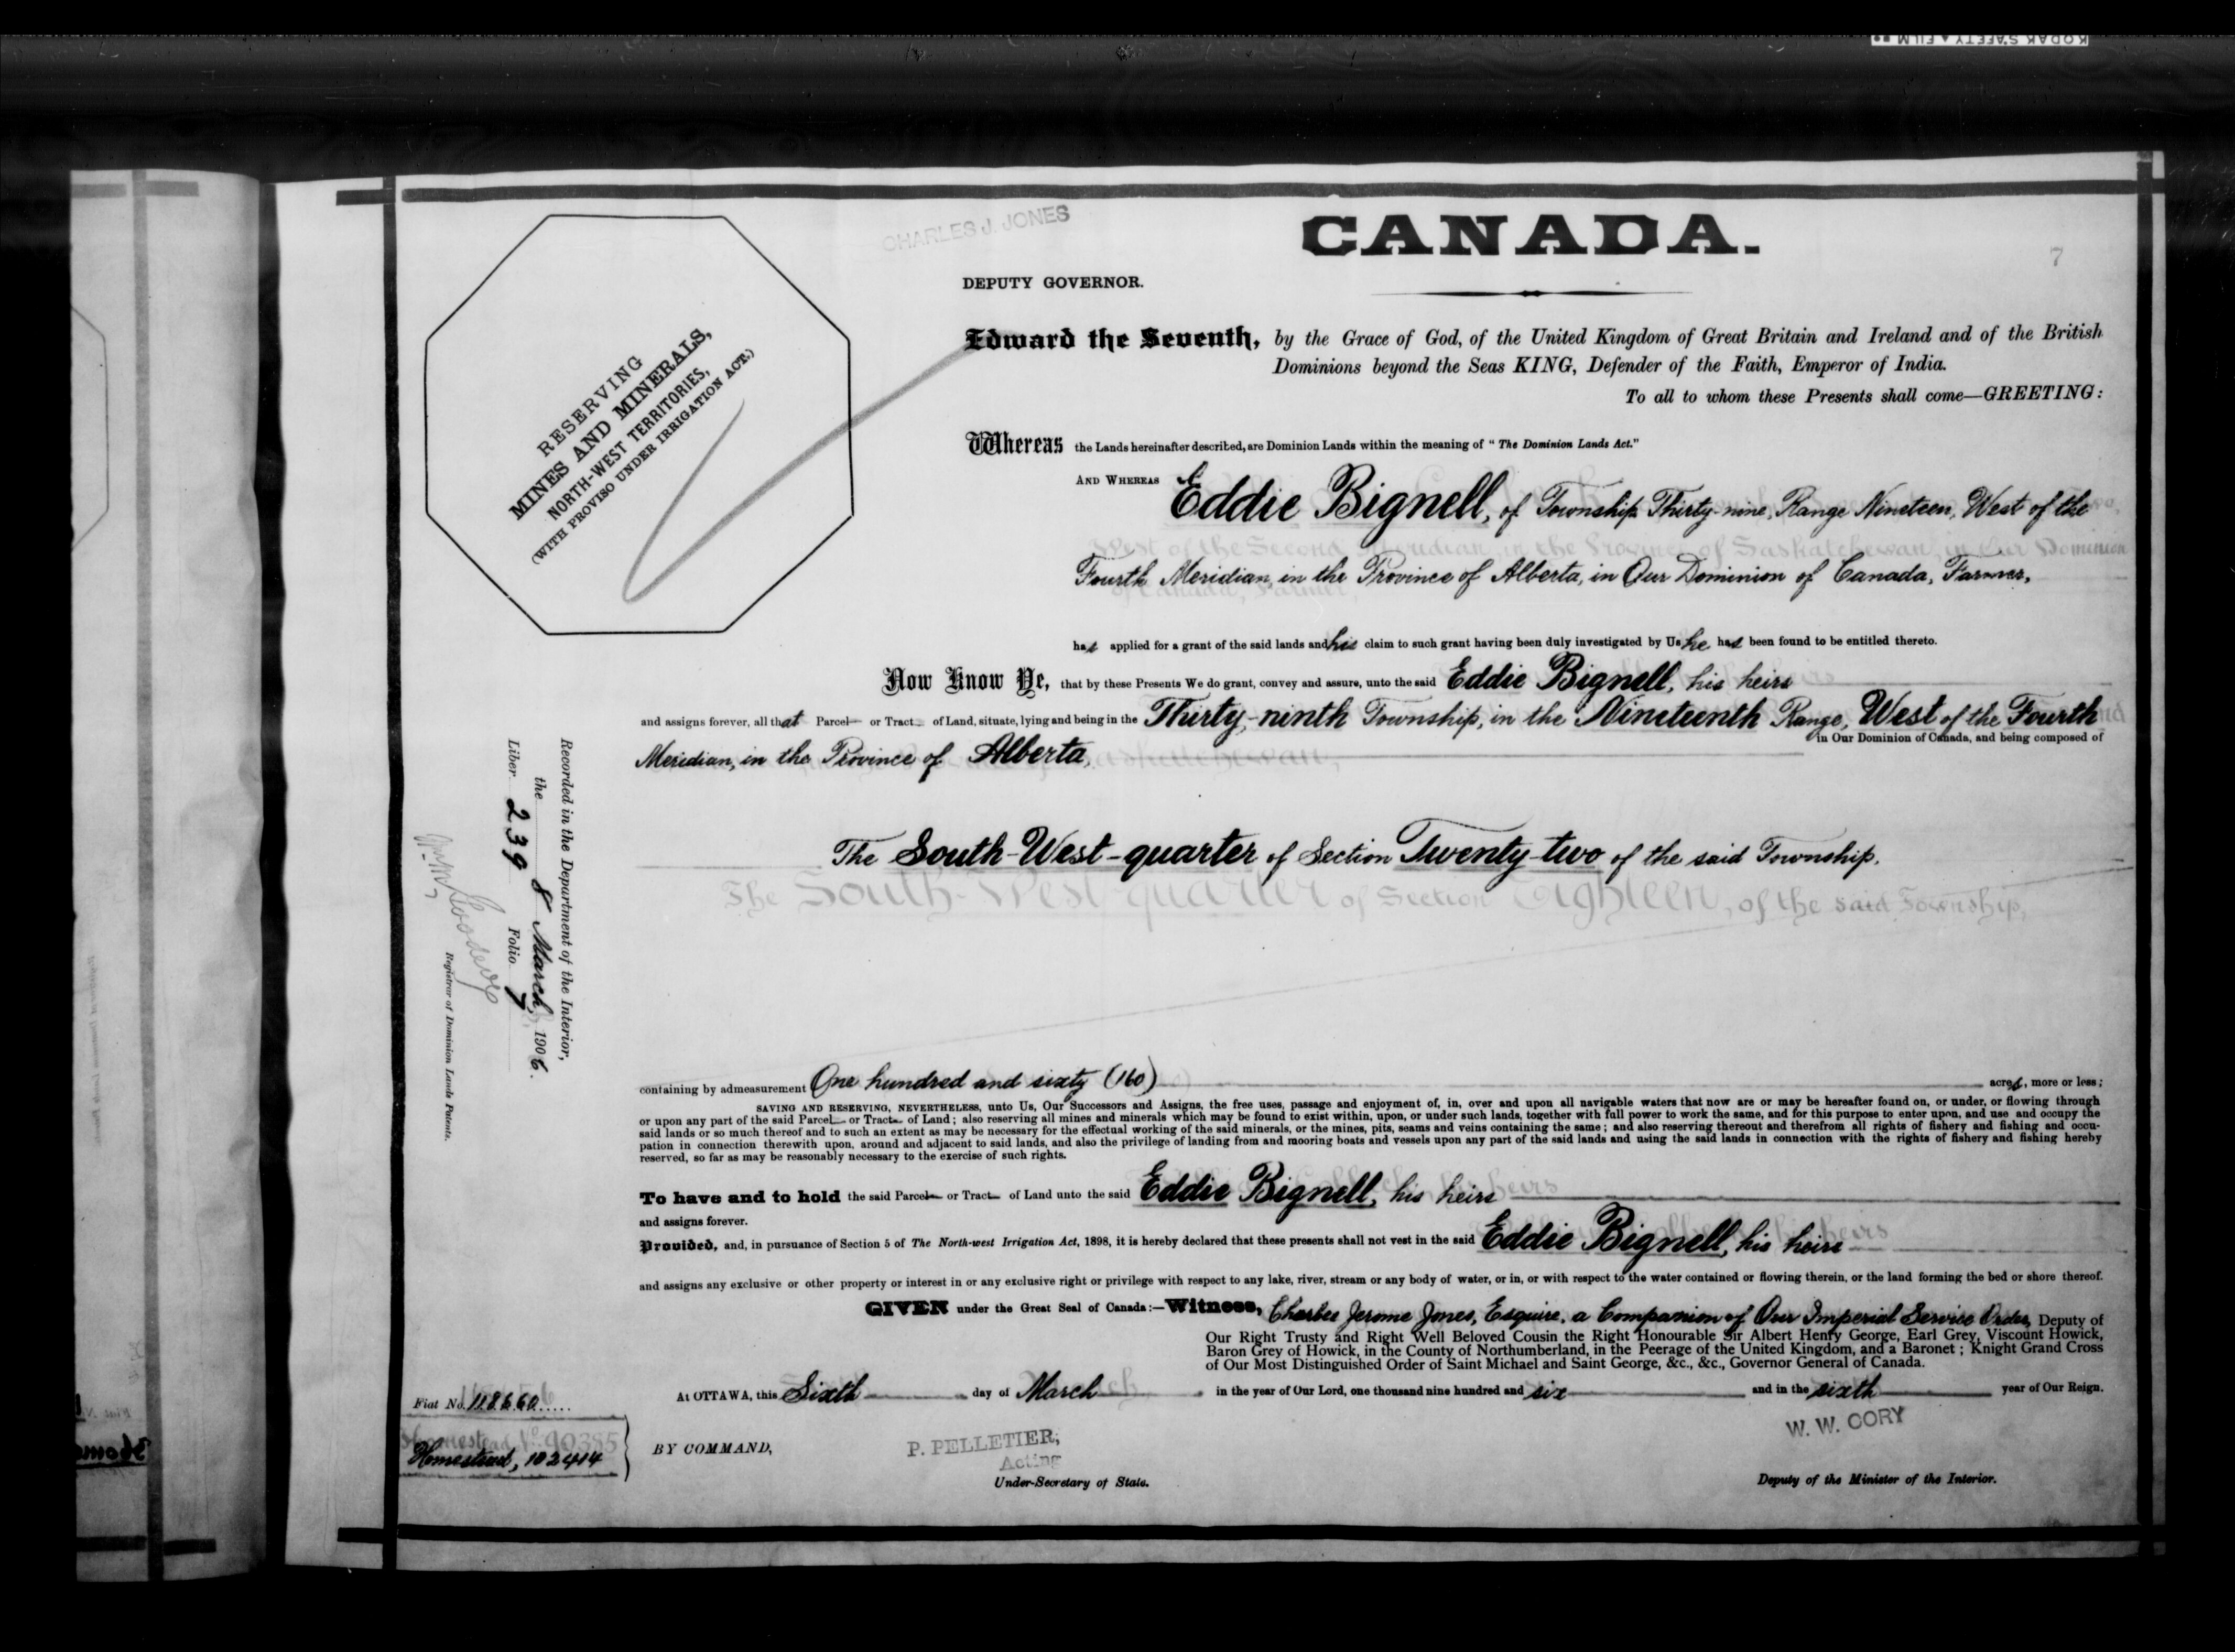 KODAK SAFETY FILM
CHARLES J. JONES
CANADA.
7
DEPUTY GOVERNOR.
RESERVING
MINES AND MINERALS,
NORTH-WEST TERRITORIES,
(WITH PROVISO UNDER IRRIGATION ACT.)
Edward the Seventh, by the Grace of God, of the United Kingdom of Great Britain and Ireland and of the British
Dominions beyond the Seas KING, Defender of the Faith, Emperor of India.
To all to whom these Presents shall come—GREETING:
Whereas the Lands hereinafter described, are Dominion Lands within the meaning of "The Dominion Lands Act."
AND WHEREAS Eddie Bignell, of Township Thirty-nine, Range Nineteen, West of the
West of the Second Meridian, in the Province of Saskatchewan, in Our Dominion
Fourth Meridian, in the Province of Alberta, in Our Dominion of Canada, Farmer,
of Canada, Farmer,
has applied for a grant of the said lands and his claim to such grant having been duly investigated by Us he has been found to be entitled thereto.
Now Know Ye, that by these Presents We do grant, convey and assure, unto the said Eddie Bignell, his heirs
and assigns forever, all that Parcel or Tract of Land, situate, lying and being in the Thirty-ninth Township, in the Nineteenth Range, West of the Fourth
in Our Dominion of Canada, and being composed of
Meridian, in the Province of Alberta,
The South-West-quarter of Section Twenty-two of the said Township.
The South-West quarter of Section Eighteen, of the said Township,
Recorded in the Department of the Interior,
the 8 March, 1906.
Liber 239 Folio 7
Registrar of Dominion Lands Patents.
containing by admeasurement One hundred and sixty (160) acres, more or less;
SAVING AND RESERVING, NEVERTHELESS, unto Us, Our Successors and Assigns, the free uses, passage and enjoyment of, in, over and upon all navigable waters that now are or may be hereafter found on, or under, or flowing through
or upon any part of the said Parcel or Tract of Land; also reserving all mines and minerals which may be found to exist within, upon, or under such lands, together with full power to work the same, and for this purpose to enter upon, and use and occupy the
said lands or so much thereof and to such an extent as may be necessary for the effectual working of the said minerals, or the mines, pits, seams and veins containing the same; and also reserving thereout and therefrom all rights of fishery and fishing and occu-
pation in connection therewith upon, around and adjacent to said lands, and also the privilege of landing from and mooring boats and vessels upon any part of the said lands and using the said lands in connection with the rights of fishery and fishing hereby
reserved, so far as may be reasonably necessary to the exercise of such rights.
To have and to hold the said Parcel or Tract of Land unto the said Eddie Bignell, his heirs
and assigns forever.
Provided, and, in pursuance of Section 5 of The North-west Irrigation Act, 1898, it is hereby declared that these presents shall not vest in the said Eddie Bignell, his heirs
and assigns any exclusive or other property or interest in or any exclusive right or privilege with respect to any lake, river, stream or any body of water, or in, or with respect to the water contained or flowing therein, or the land forming the bed or shore thereof.
GIVEN under the Great Seal of Canada:—Witness, Charles Jerome Jones, Esquire, a Companion of Our Imperial Service Order, Deputy of
Our Right Trusty and Right Well Beloved Cousin the Right Honourable Sir Albert Henry George, Earl Grey, Viscount Howick,
Baron Grey of Howick, in the County of Northumberland, in the Peerage of the United Kingdom, and a Baronet; Knight Grand Cross
of Our Most Distinguished Order of Saint Michael and Saint George, &c., &c., Governor General of Canada.
At OTTAWA, this Sixth day of March in the year of Our Lord, one thousand nine hundred and six and in the sixth year of Our Reign.
Fiat No. 118660
Homestead No. 90385
Homestead, 102414
BY COMMAND,
P. PELLETIER,
Acting
Under-Secretary of State.
W. W. CORY
Deputy of the Minister of the Interior.